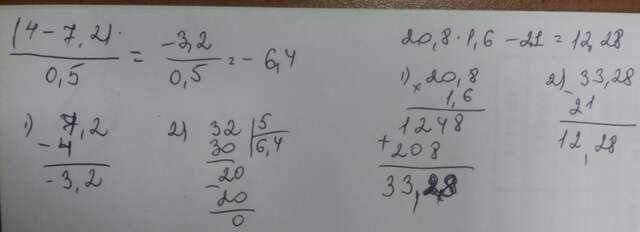 (4 - 7,2)· / 0,5 = -3,2 / 0,5 = -6,4
1) 7,2
- 4
-3,2
2) 32 | 5
30 | 6,4
20
- 20
0
20,8 · 1,6 - 21 = 12,28
1) × 20,8
1,6
1248
+ 208
33,28
2) 33,28
- 21
12,28